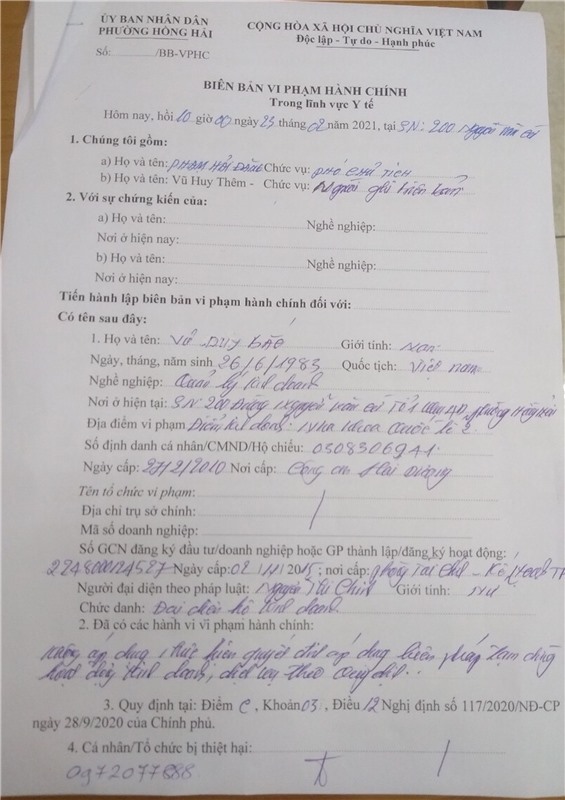 ỦY BAN NHÂN DÂN
PHƯỜNG HỒNG HẢI
CỘNG HÒA XÃ HỘI CHỦ NGHĨA VIỆT NAM
Độc lập - Tự do - Hạnh phúc
Số: /BB-VPHC
BIÊN BẢN VI PHẠM HÀNH CHÍNH
Trong lĩnh vực Y tế
Hôm nay, hồi 10 giờ 00 ngày 23 tháng 02 năm 2021, tại SN: 200
1. Chúng tôi gồm:
a) Họ và tên: Chức vụ: Phó Chủ tịch
b) Họ và tên: Vũ Huy Thêm - Chức vụ: Người ghi biên bản
2. Với sự chứng kiến của:
a) Họ và tên: Nghề nghiệp:
Nơi ở hiện nay:
b) Họ và tên: Nghề nghiệp:
Nơi ở hiện nay:
Tiến hành lập biên bản vi phạm hành chính đối với:
Có tên sau đây:
1. Họ và tên: Vũ Duy Bắc Giới tính: Nam
Ngày, tháng, năm sinh 26/6/1983 Quốc tịch: Việt nam
Nghề nghiệp: Quản lý kinh doanh
Nơi ở hiện tại: SN 200 Đường Nguyễn văn cừ Tổ 1 phường Hồng Hải
Địa điểm vi phạm Điểm kinh doanh: Nha khoa Quốc tế 2
Số định danh cá nhân/CMND/Hộ chiếu:
Ngày cấp: Nơi cấp: Công an Hải Dương
Tên tổ chức vi phạm:
Địa chỉ trụ sở chính:
Mã số doanh nghiệp:
Số GCN đăng ký đầu tư/doanh nghiệp hoặc GP thành lập/đăng ký hoạt động:
Ngày cấp: nơi cấp: phòng Tài Chính - Kế Hoạch TP
Người đại diện theo pháp luật: Nguyễn Thị Giới tính: Nữ
Chức danh: Đại diện hộ kinh doanh.
2. Đã có các hành vi vi phạm hành chính:
Không áp dụng, thực hiện quyết định áp dụng biện pháp tạm dừng
hoạt động kinh doanh, dịch vụ theo quy định.
3. Quy định tại: Điểm c, Khoản 03, Điều 12 Nghị định số 117/2020/NĐ-CP
ngày 28/9/2020 của Chính phủ.
4. Cá nhân/Tổ chức bị thiệt hại: